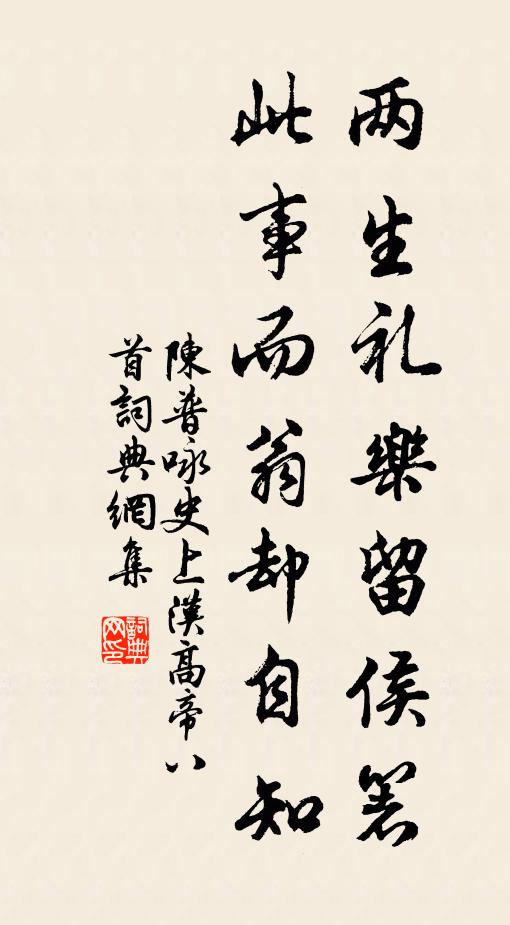 两生礼樂留侯箸
此事而翁却自知
陳普咏史上漢高帝八
首詞典網集
詞典網印